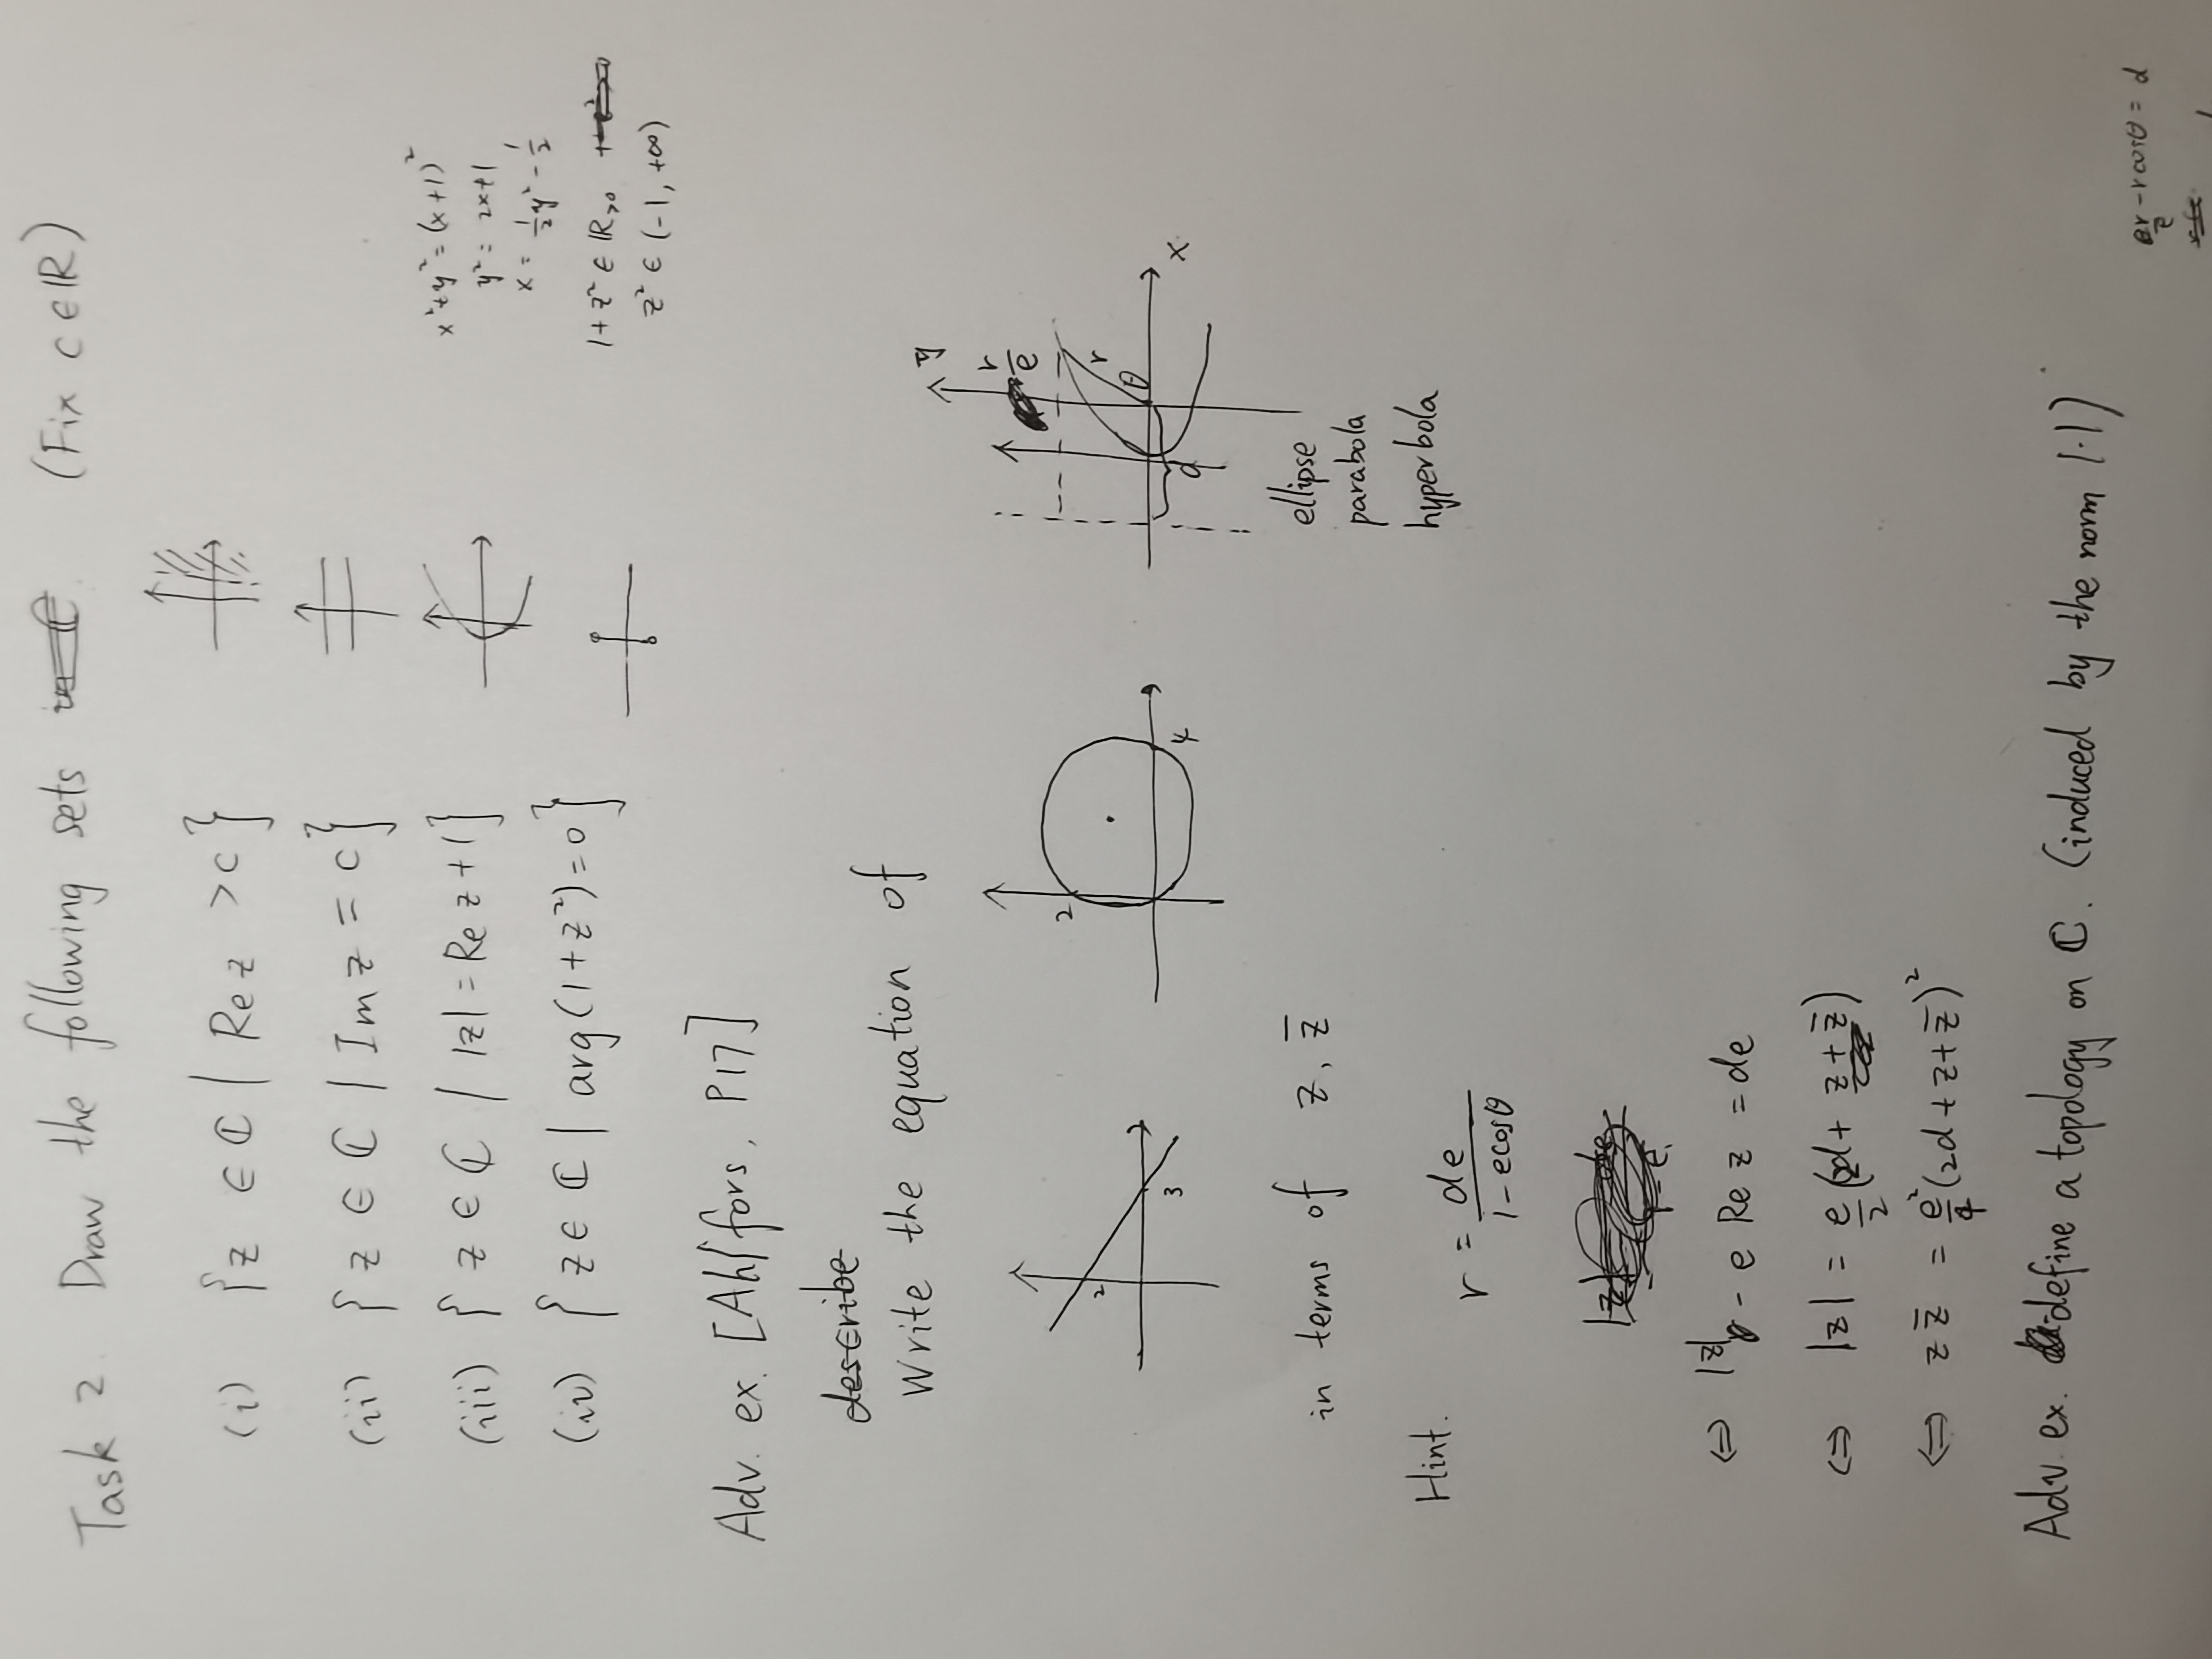 Task 2. Draw the following sets (Fix c ∈ ℝ)
(i) {z ∈ ℂ | Re z > c}
(ii) {z ∈ ℂ | Im z = c}
(iii) {z ∈ ℂ | |z| = Re z + 1}
x² + y² = (x+1)²
y² = 2x+1
x = 1/2 y² - 1/2
(iv) {z ∈ ℂ | arg(1+z²) = 0}
1 + z² ∈ ℝ>0
z² ∈ (-1, +∞)
Adv. ex. [Ahlfors, P17]
describe
Write the equation of
2
3
2
4
y
r/e
r
θ
d
x
in terms of z, z̄
ellipse
parabola
hyperbola
Hint.
r = de/(1 - e cosθ)
⇔ |z| - e Re z = de
⇔ |z| = e/2 (2d + z + z̄)
⇔ z z̄ = e²/4 (2d + z + z̄)²
Adv. ex. define a topology on ℂ. (induced by the norm |·|)
r/e - r cosθ = d